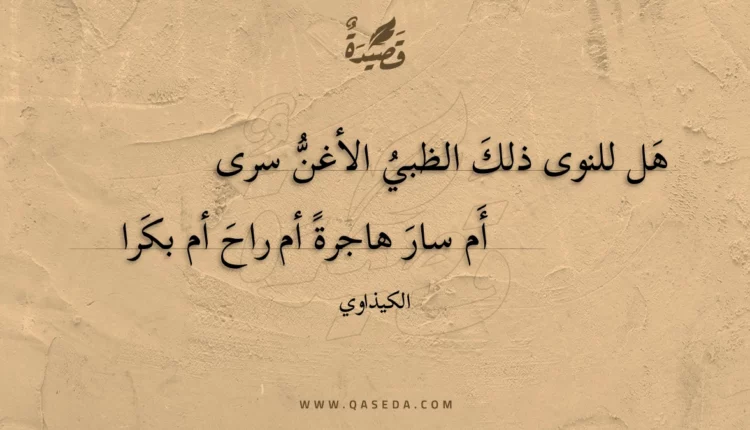 قَصِيدَةٌ
هَل للنوى ذلكَ الظبيُ الأغنُّ سرى
أَم سارَ هاجرةً أم راحَ أم بكَرا
الكيذاوي
WWW.QASEDA.COM